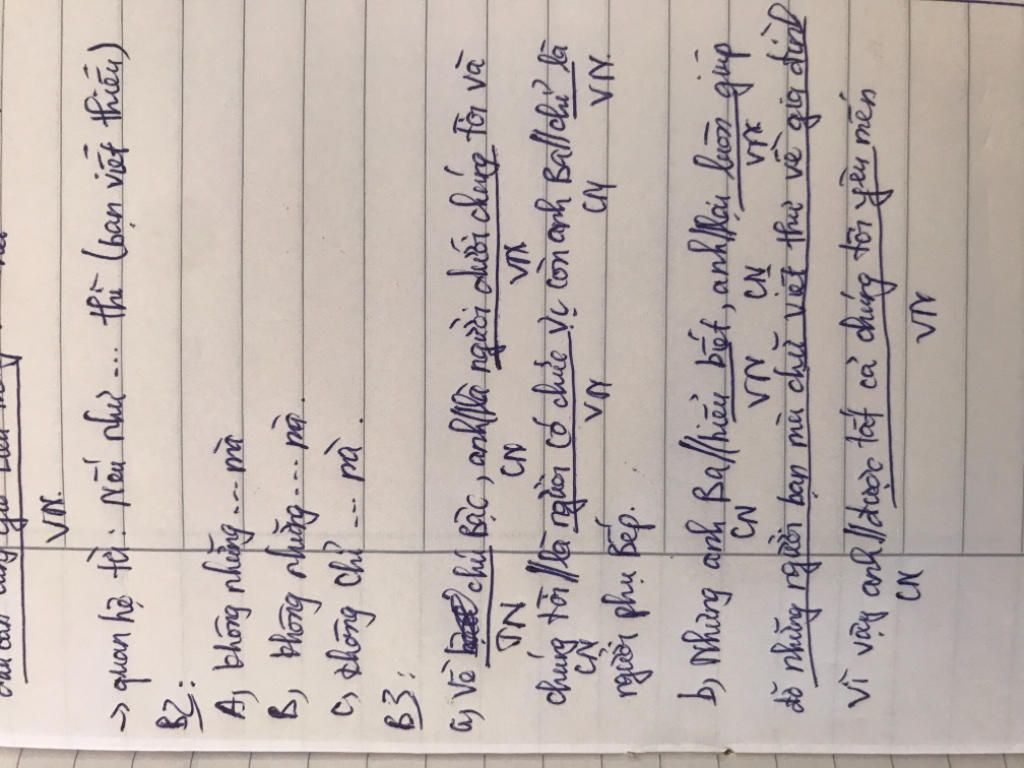 VN.
→ quan hệ từ: Nếu như... thì (bạn viết thiếu)
B2:
A, không những... mà
B, không những... mà.
C, không chỉ... mà.
B3:
a, Về chú Bậc, anh//là người dưới chúng tôi và
TN CN VN
chúng tôi//là người có chức vị còn anh Ba//chỉ là
CN VN CN VN.
người phụ bếp.
b, Nhưng anh Ba//hiểu biết, anh//lại luôn giúp
CN VN CN VN
đỡ những người bạn mù chữ viết thư về gia đình
Vì vậy anh//được tất cả chúng tôi yêu mến
CN VN